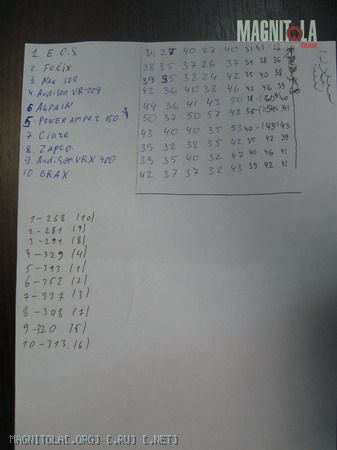 MAGNITOLA
Team
1 E.O.S. 34 27 40 27 40 31 41 28
2. Felix 38 35 37 26 37 34 38 36
3. MAK 100 39 35 38 24 42 35 40 38
4. Audison VR 209. 42 36 40 38 46 42 46 39
6 ALPAIN 44 36 41 43 50 38 40
5 POWER AMPER 150 50 37 50 57 42 56 41
7 Ciare 43 40 40 35 53 40 43
8. ZAPCO. 39 38 38 35 42 35 42 39
9. Audison VRX 400 39 35 40 32 47 40 46 41
10. BRAX 42 37 37 32 43 39 42 41
1-268 (10)
2-281 (9)
3-291 (8)
4-329 (4)
5-393 (1)
6-352 (2)
7-337 (3)
8-308 (7)
9-320 (5)
10-313 (6)
MAGNITOLA[.ORG] [.RU] [.NET]